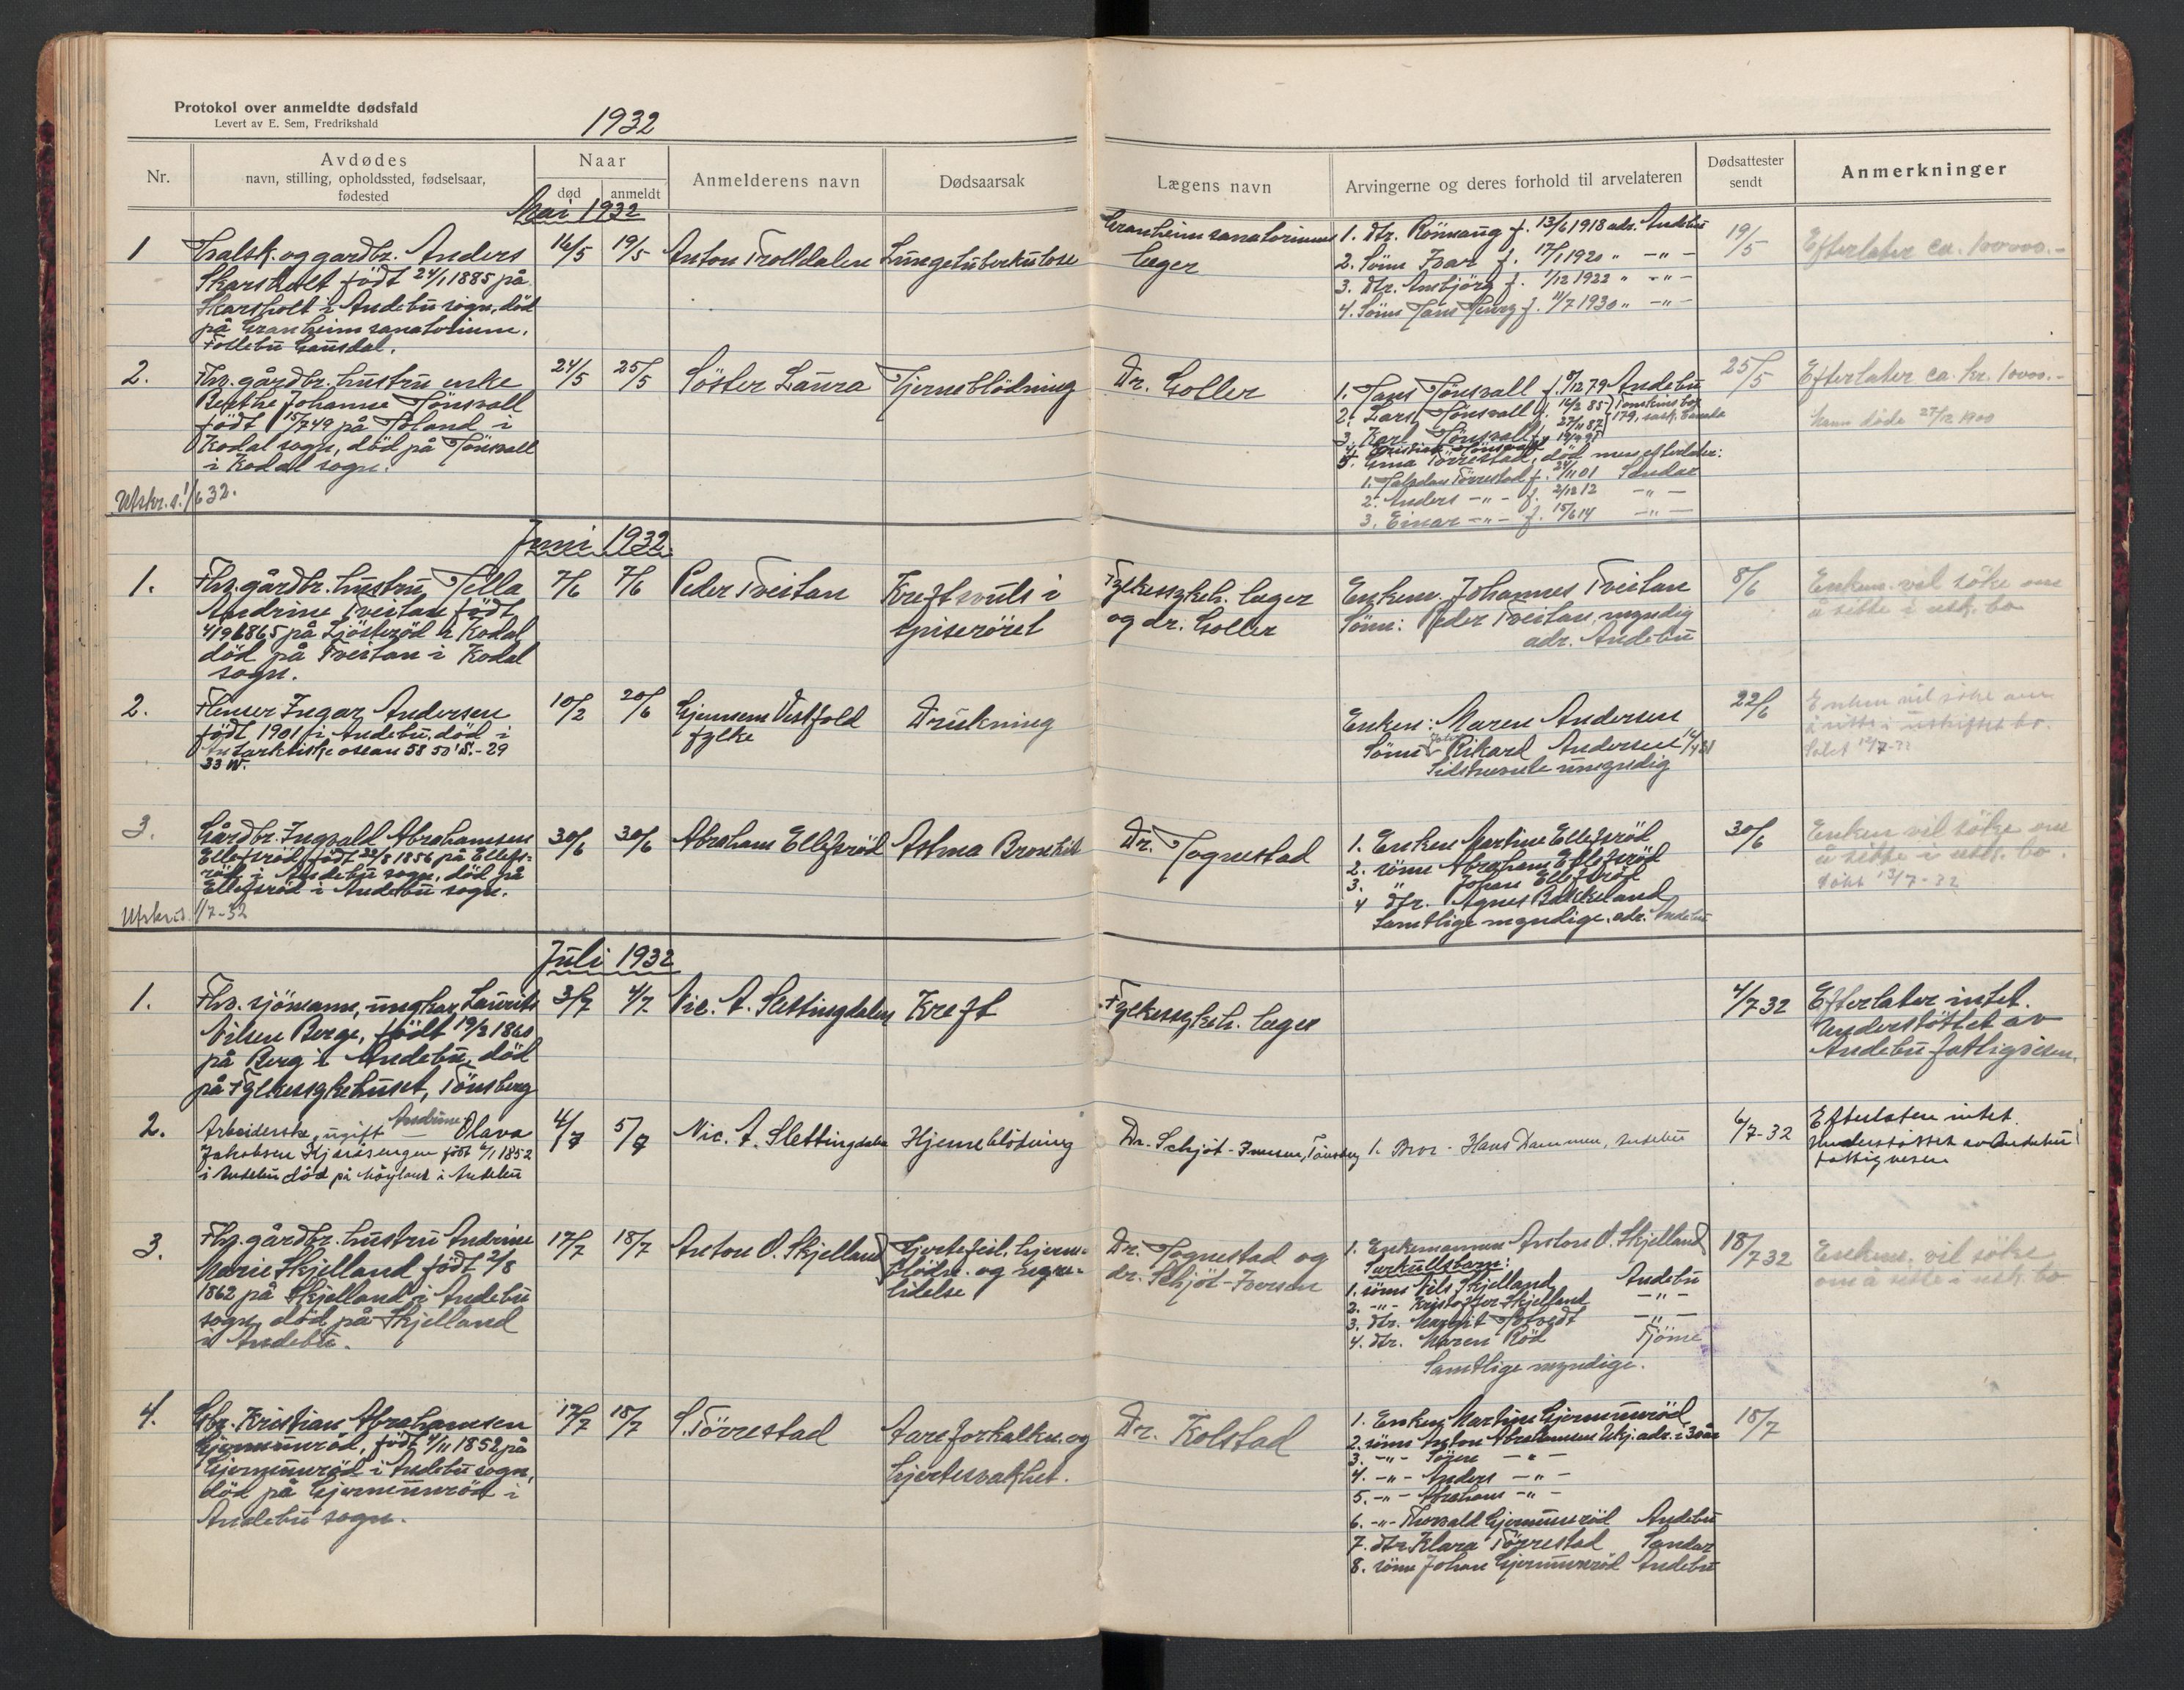 Protokol over anmeldte dødsfald
Levert av E. Sem, Fredrikshald
1932
Nr.
Avdødes
navn, stilling, opholdssted, fødselsaar,
fødested
Naar
død
anmeldt
Anmelderens navn
Dødsaarsak
Lægens navn
Arvingerne og deres forhold til arvelateren
Dødsattester
sendt
Anmerkninger
Mai 1932
1
og gardbr. Anders
Skarsholt født 24/1 1885 på
Skarsholt i Andebu sogn, død
på Granheim sanatorium,
Follebu Gausdal.
16/5
19/5
Anton Trolldalen
Lungetuberkulose
Granheim sanatoriums
læger
1. dtr. Rönnaug f. 13/6 1918 adr. Andebu
2. Sönn Ivar f. 17/1 1920 " -"-
3. dtr. Ansbjörg f. 1/12 1922 " -"-
4. Sönn Hans f. 11/7 1930 " -"-
19/5
Efterlater ca. 100000.-
2.
Fhv. gårdbr. hustru enke
Berthe Johanne Hönsvall
født 15/7 49 på Holand i
Kodal sogn, död på Hönsvall
i Kodal sogn.
24/5
25/5
Söster Laura
Hjerneblödning
Dr. Goller
1. Hans Hönsvall f. 9/12 79 Andebu
2. Lars Hönsvall f. 14/2 85
3. Karl Hönsvall f. 27/11 87
4. Kristian Hönsvall
5. Ema Törrestad, död men efterlater:
1. Halfdan Törrestad f. 24/11 01 Sandar
2. Anders -"- f. 2/12 12 -"-
3. Einar -"- f. 15/6 14 -"-
25/5
Efterlater ca. kr. 10000.-
Mann döde 27/12 1900
Utskr. s. 1/6 32.
Juni 1932
1.
Fhv. gårdbr. hustru Hella
Andrine Tveitan født
4/9 1865 på Ljösteröd i Kodal,
død på Tveitan i Kodal
sogn.
7/6
7/6
Peder Tveitan
Kreftsvuls i
spiserøret
Fylkessykeh. læger
og dr. Goller
Enkem. Johannes Tveitan
Sönn: Peder Tveitan, myndig
adr. Andebu
8/6
Enkem. vil söke om
å sitte i usk. bo
2.
Flenser Ingar Andersen
født 1901 i Andebu, död i
Antarktiske osean 58 50' S. - 29
33 W.
10/2
20/6
Gjennem Vestfold
fylke
Drukning
Enken: Maren Andersen
Sönn Rikard Andersen
Sistnevnte umyndig
22/6
Enken vil söke om
å sitte i uskiftet bo.
3.
Gårdbr. Ingvald Abrahamsen
Ellefsröd, født 22/8 1856 på Ellefs-
röd i Andebu sogn, död på
Ellefsröd i Andebu sogn.
30/6
30/6
Abraham Ellefsröd
Astma Bronkit
Dr. Tognestad
1. Enken Martine Ellefsröd
2. sönn Abraham Ellefsröd
3. " Johan Ellefsröd
4 dtr. Agnes Bakkeland
Samtlige myndige. adr. Andebu
30/6
Enken vil söke om
å sitte i usk. bo.
Sökt 13/7-32
Utskr. s. 1/7-32
Juli 1932
1.
Fhv. sjömann, ungkar, Laurits
Nilsen Berge, født 19/3 1860
på Berg i Andebu, död
på Fylkessykehuset, Tönsberg
3/7
4/7
Nic. A. Slettingdalen
Kreft
Fylkessykeh. læger
4/7 32
Efterlater intet.
Understöttet av
Andebu fattigvesen.
2.
Arbeiderske, ugift Andrine Olava
Jakobsen Kjæråsengen født 4/1 1852
i Andebu död på Möyland i Andebu
4/7
5/7
Nic. A. Slettingdalen
Hjerneblödning
Dr. Schjöt-Iversen, Tönsberg
1. Bror - Hans Dammen, Andebu
6/7-32
Efterlatere intet.
Understöttet av Andebu
fattigvesen
3.
Fhv. gårdbr. hustru Andrine
Marie Skjelland født 2/8
1862 på Skjelland i Andebu
sogn, död på Skjelland
i Andebu.
17/7
18/7
Anton O. Skjelland
Hjertefeil, hjerne-
blödn. og nyre-
lidelse
Dr. Tognestad og
dr. Schjöt-Iversen
1. Enkemannen Anton O. Skjelland
Særkullsbarn:
1. sönn Nils Skjelland Andebu
2. -"- Kristoffer Skjelland -"-
3. dtr. Margit -"-
4. dtr. Maren Röd Tjöme
Samtlige myndige.
18/7 32
Enkem. vil söke
om å sitte i usk. bo
4.
Gbr. Kristian Abrahamsen
Gjermundröd, født 4/11 1852 på
Gjermundröd i Andebu sogn,
död på Gjermundröd i
Andebu sogn.
17/7
18/7
S. Törrestad
Åreforkalkn. og
hjertesvakhet.
Dr. Kolstad
1. Enken Martine Gjermundröd
2. sönn Anton Abrahamsen Ukj. adr. i 30 år
3. -"- Sören -"-
4. -"- Anders -"-
5. -"- Abraham -"-
6. -"- Thorvald Gjermundröd Andebu
7. dtr Klara Törrestad Sandar
8. sönn Johan Gjermundröd Andebu
18/7